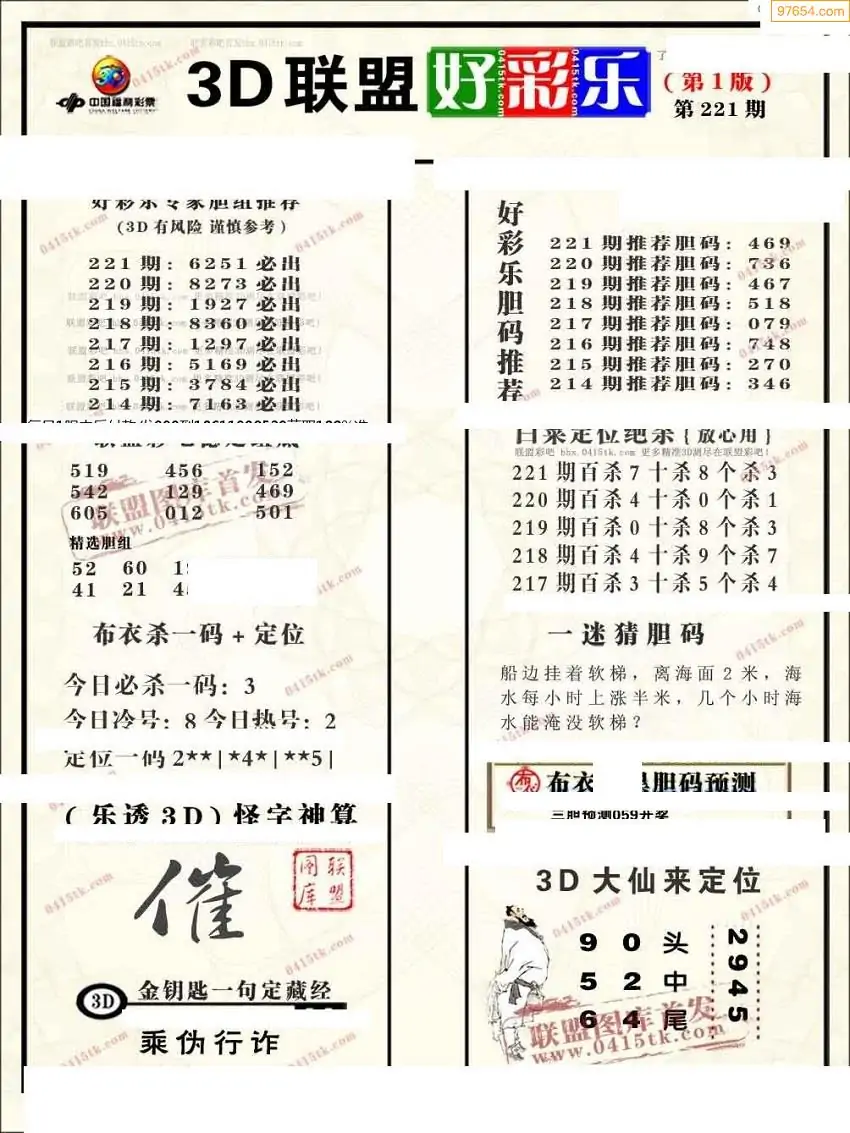 97654.com
联盟彩吧首发bbx.0415tk.com
3D 联盟 好彩乐
(第1版)
第 221 期
中国福利彩票
CHINA WELFARE LOTTERY
好彩乐专家胆组推荐
(3D 有风险 谨慎参考)
221 期: 6251 必出
220 期: 8273 必出
219 期: 1927 必出
218 期: 8360 必出
217 期: 1297 必出
216 期: 5169 必出
215 期: 3784 必出
214 期: 7163 必出
519 456 152
542 129 469
605 012 501
精选胆组
52 60
41 21
布衣杀一码 + 定位
今日必杀一码: 3
今日冷号: 8 今日热号: 2
定位一码 2**|*4*|**5|
(乐透 3D) 怪字神算
催
联盟图库
3D 金钥匙一句定藏经
乘伪行诈
好彩乐胆码推荐
221 期推荐胆码: 469
220 期推荐胆码: 736
219 期推荐胆码: 467
218 期推荐胆码: 518
217 期推荐胆码: 079
216 期推荐胆码: 748
215 期推荐胆码: 270
214 期推荐胆码: 346
白菜定位绝杀{放心用}
联盟彩吧 bbx.0415tk.com 更多精准3D湖尽在联盟彩吧!
221 期百杀 7 十杀 8 个杀 3
220 期百杀 4 十杀 0 个杀 1
219 期百杀 0 十杀 8 个杀 3
218 期百杀 4 十杀 9 个杀 7
217 期百杀 3 十杀 5 个杀 4
一迷猜胆码
船边挂着软梯，离海面 2 米，海
水每小时上涨半米，几个小时海
水能淹没软梯？
布 布衣 胆码预测
三胆预测059开奖
3D 大仙来定位
9 0 头
5 2 中
6 4 尾
2945
联盟图库首发
www.0415tk.com